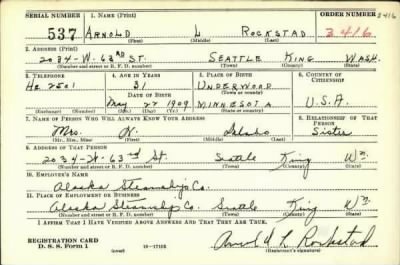 SERIAL NUMBER 1. NAME (Print) ORDER NUMBER
537 ARNOLD L ROCKSTAD 3416 3416
(First) (Middle) (Last)
2. ADDRESS (Print)
2034-W-63RD ST. SEATTLE KING WASH.
(Number and street or R. F. D. number) (Town) (County) (State)
3. TELEPHONE 4. AGE IN YEARS 5. PLACE OF BIRTH 6. COUNTRY OF CITIZENSHIP
HE 2501 31 UNDERWOOD
DATE OF BIRTH (Town or county)
May 27 1909 MINNESOTA U.S.A.
(Exchange) (Number) (Mo.) (Day) (Yr.) (State or country)
7. NAME OF PERSON WHO WILL ALWAYS KNOW YOUR ADDRESS 8. RELATIONSHIP OF THAT PERSON
Mrs. Sister
(Mr., Mrs., Miss) (First) (Middle) (Last)
9. ADDRESS OF THAT PERSON
2034-W-63rd St. Seattle King Wn.
(Number and street or R. F. D. number) (Town) (County) (State)
10. EMPLOYER'S NAME
Alaska Steamship Co.
11. PLACE OF EMPLOYMENT OR BUSINESS
Alaska Steamship Co. Seattle King Wn.
(Number and street or R. F. D. number) (Town) (County) (State)
I AFFIRM THAT I HAVE VERIFIED ABOVE ANSWERS AND THAT THEY ARE TRUE.
REGISTRATION CARD
D. S. S. Form 1 (over) 16-17105 Arnold L Rockstad
(Registrant's signature)